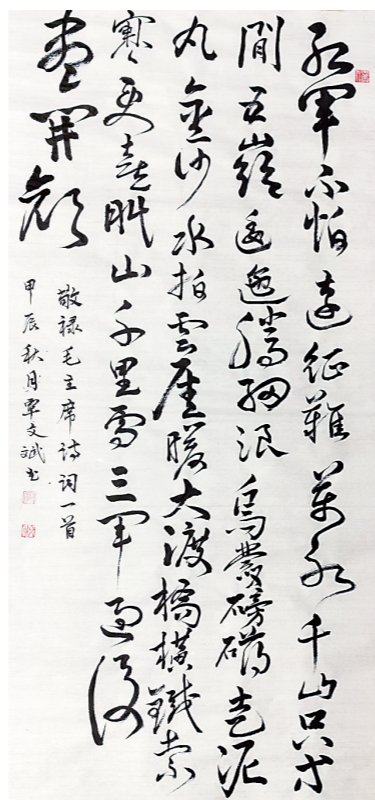 紅軍不怕遠征難萬水千山只等
閒五嶺逶迤騰細浪烏蒙磅礴走泥
丸金沙水拍雲崖暖大渡橋橫鐵索
寒更喜岷山千里雪三軍過後
盡開顏
敬禄毛主席詩詞一首
甲辰秋月覃文斌书